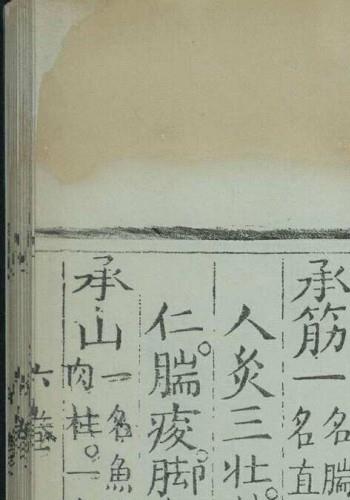 承筋一名腨
名直
人灸三壯。
仁。腨痠脚
承山一名魚
肉柱。一